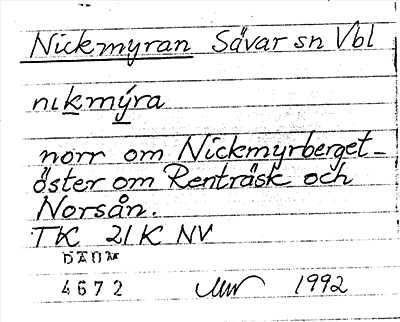 Nickmyran Sävar sn Vbl
nıkmýra
norr om Nickmyrberget_
öster om Renträsk och
Norsån.
TK 21K NV
DAUM
4672 1992